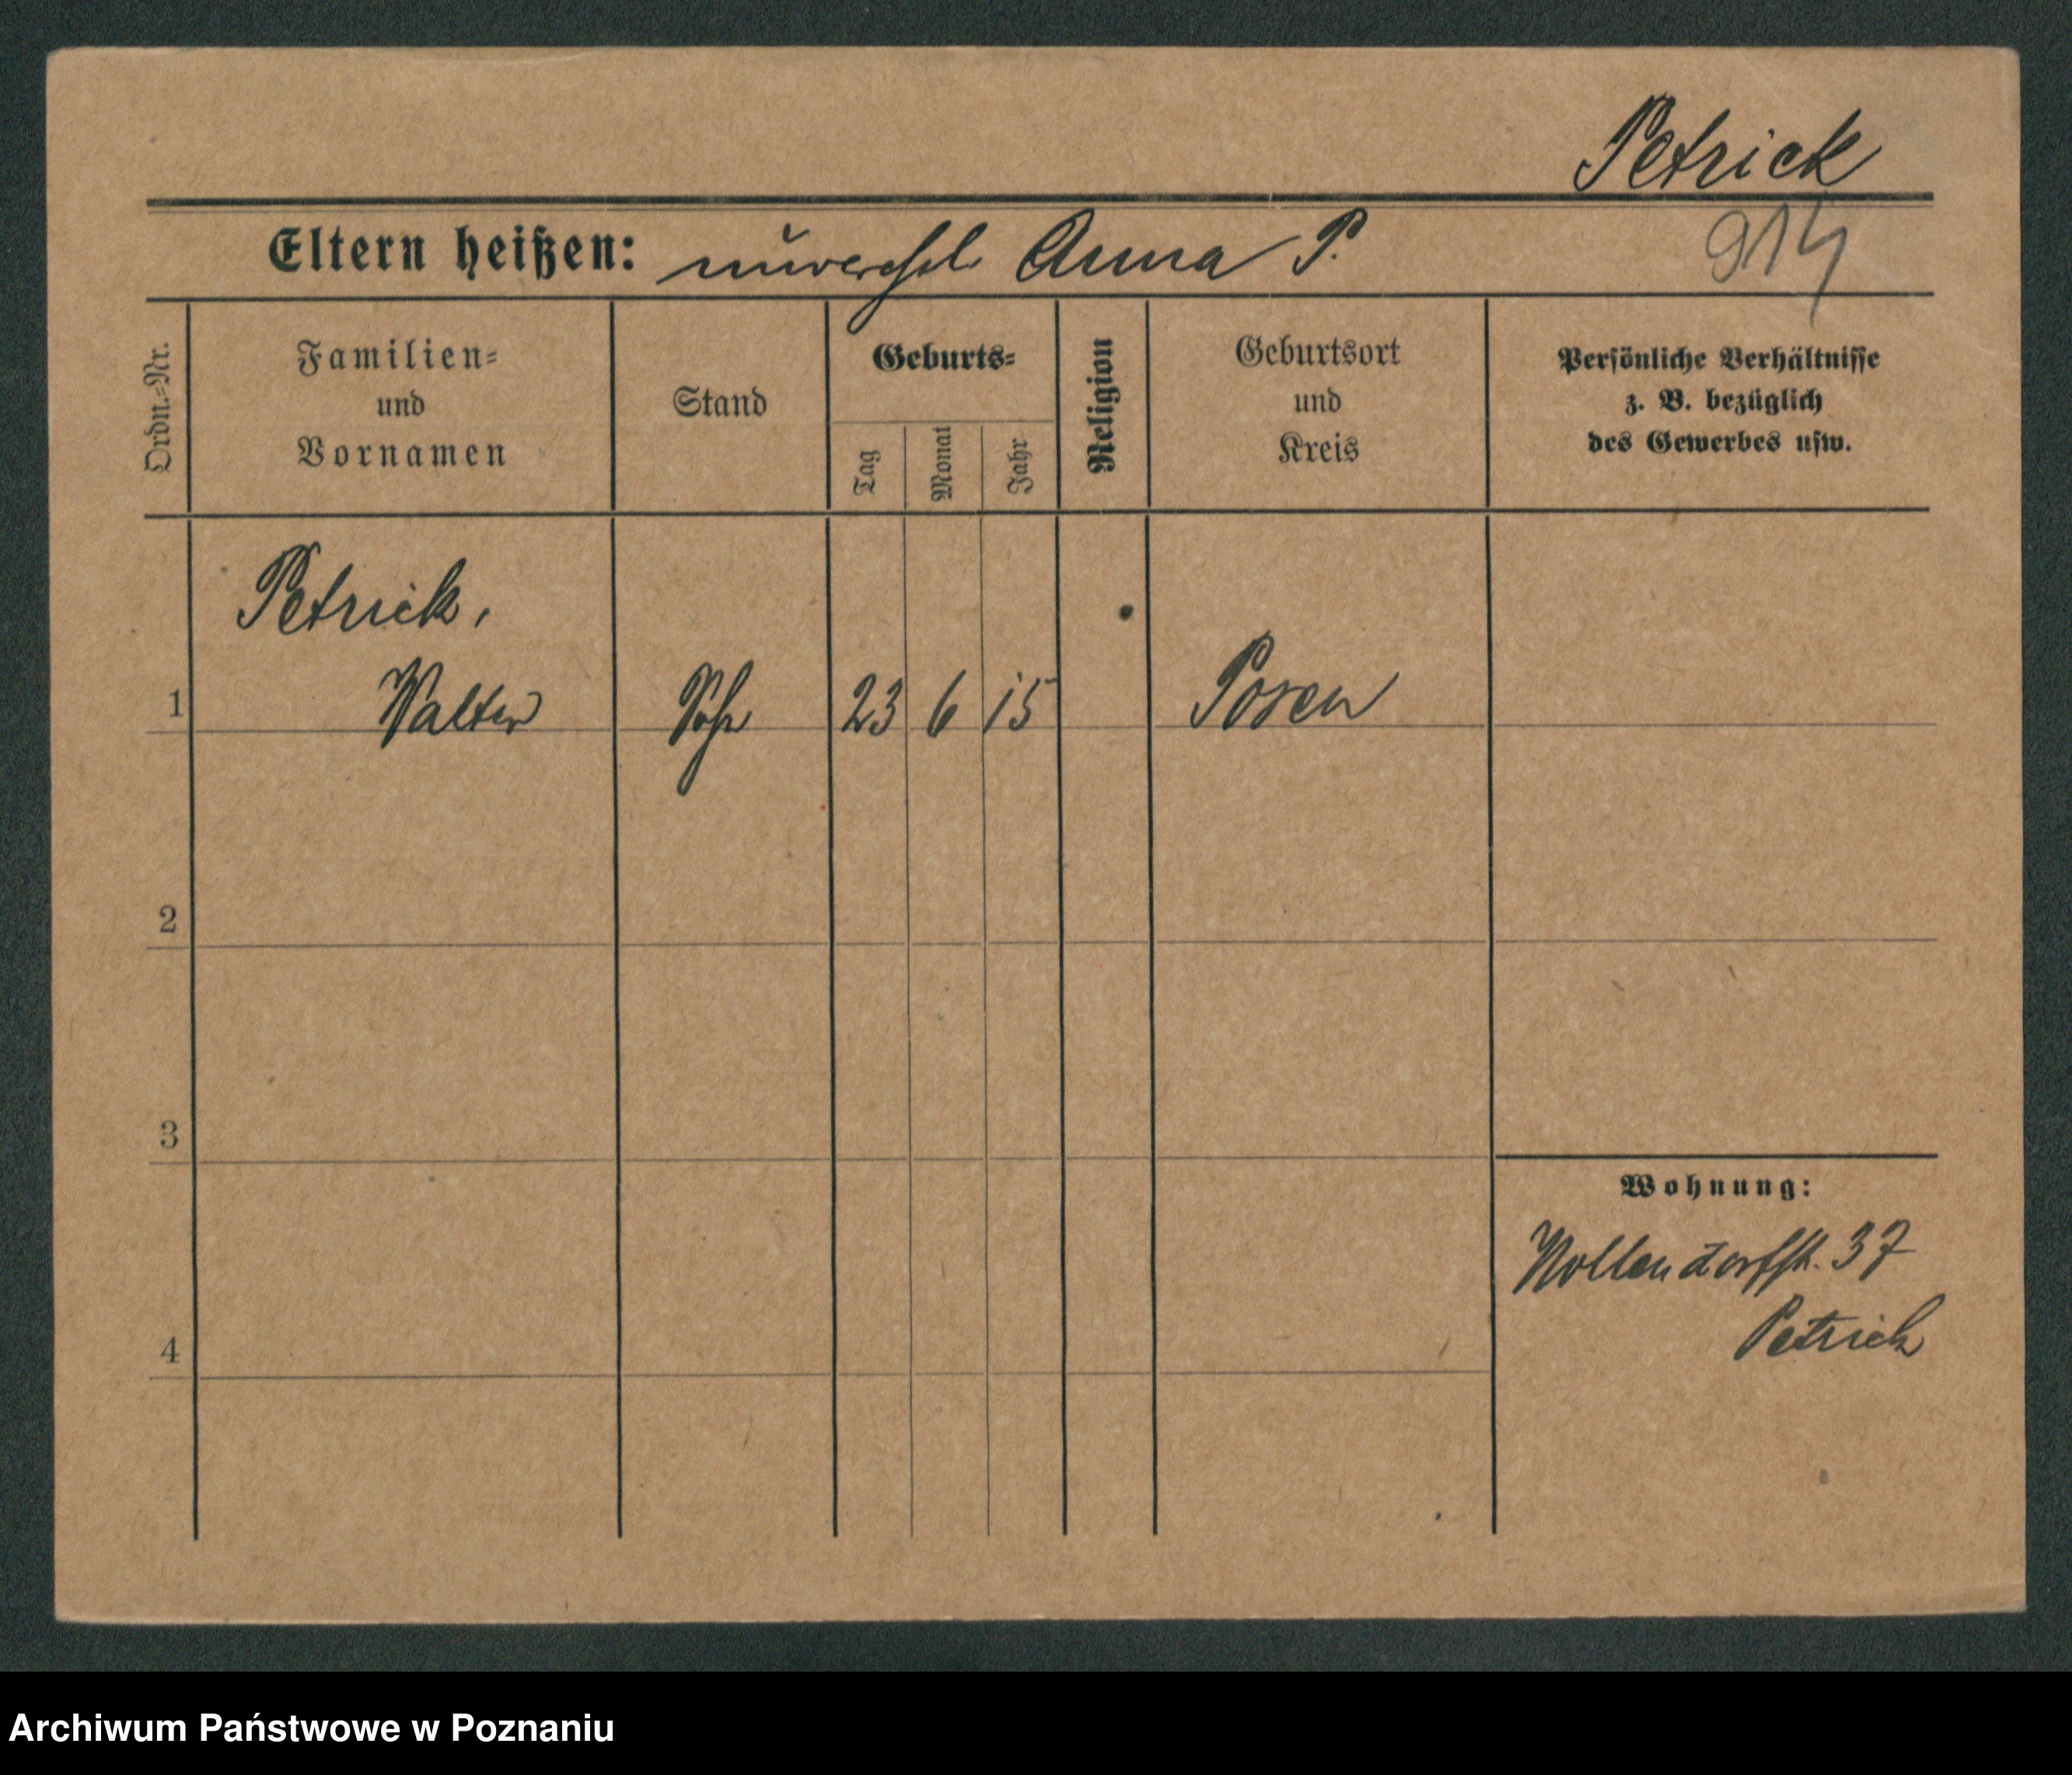 Petrick
Eltern heißen: unverehel. Anna P.
914
Ordn.=Nr.
Familien=
und
Vornamen
Stand
Geburts=
Tag
Monat
Jahr
Religion
Geburtsort
und
Kreis
Persönliche Verhältnisse
z. B. bezüglich
des Gewerbes usw.
Petrick,
1 Walter Sohn 23 6 15 Posen
2
3
Wohnung:
Nollendorfstr. 37
Petrick
4
Archiwum Państwowe w Poznaniu